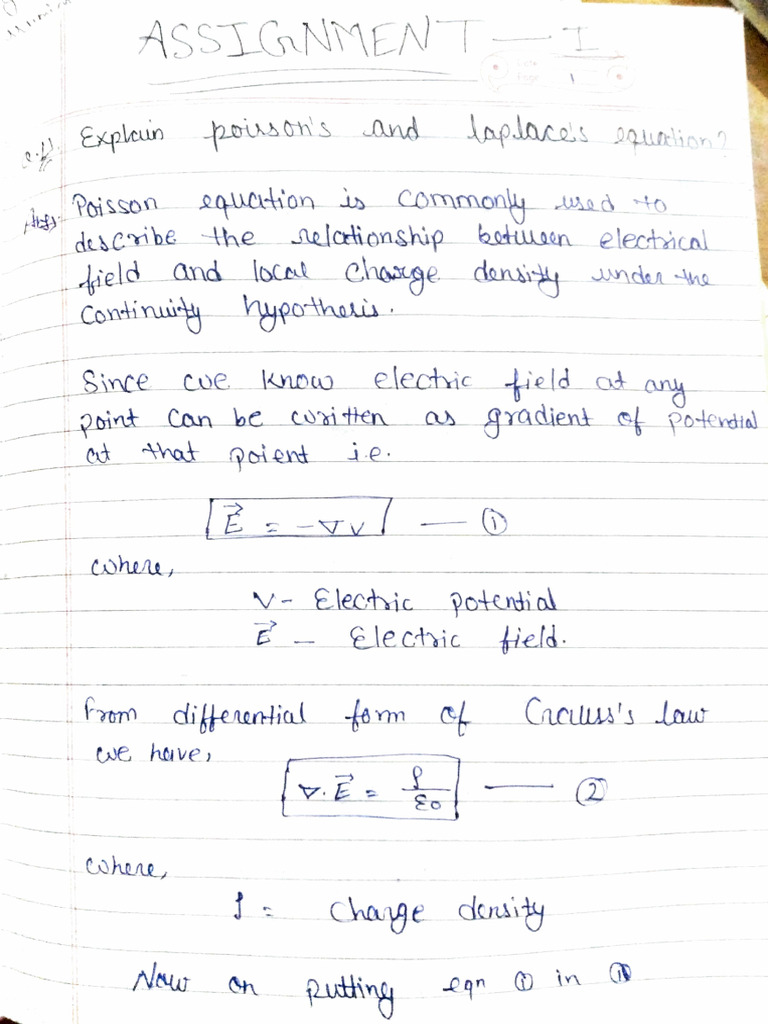 ASSIGNMENT — I
1
Q.1. Explain poisson's and laplace's equation?
Ans. Poisson equation is commonly used to
describe the relationship between electrical
field and local charge density under the
Continuity hypothesis.
Since we know electric field at any
point can be written as gradient of potential
at that poient i.e.
E⃗ = -∇V — ①
where,
V - Electric potential
E⃗ - Electric field.
From differential form of Gauss's law
we have,
∇.E⃗ = ρ/ε0 — ②
where,
ρ = charge density
Now on putting eqn ① in ⑪